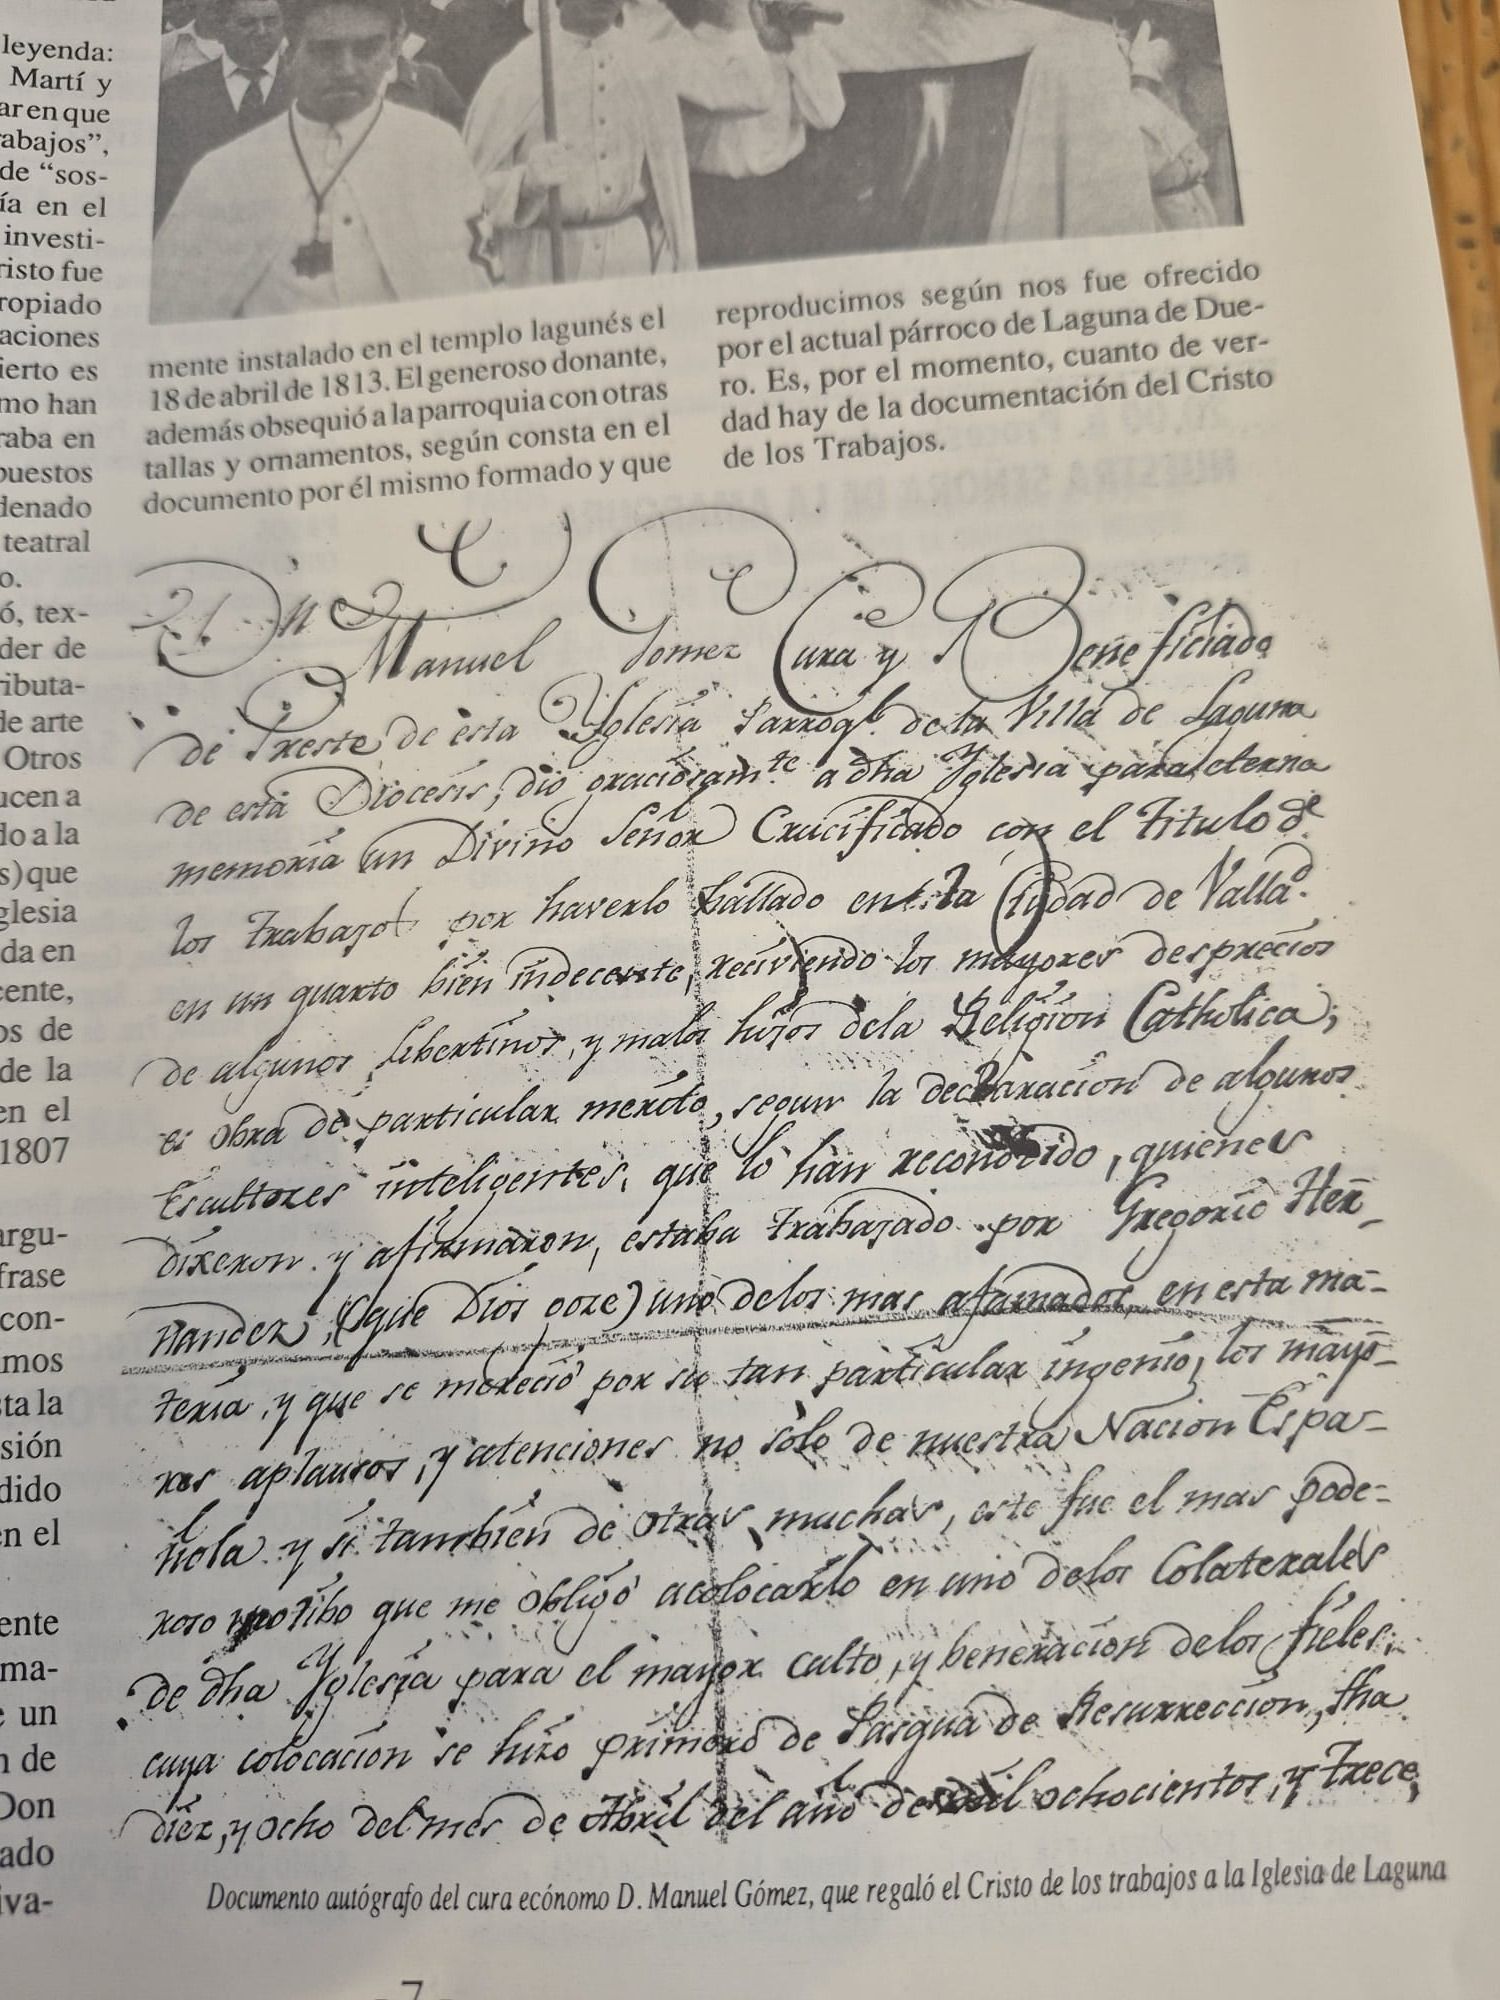 leyenda:
Martí y
ar en que
rabajos”,
de “sos-
ía en el
investi-
risto fue
ropiado
aciones
ierto es
mo han
raba en
puestos
denado
teatral
o.
ó, tex-
der de
ributa-
de arte
Otros
ucen a
do a la
s) que
glesia
da en
cente,
os de
de la
en el
1807
argu-
frase
con-
mos
sta la
sión
dido
en el
ente
ma-
e un
n de
Don
ado
iva-
mente instalado en el templo lagunés el
18 de abril de 1813. El generoso donante,
además obsequió a la parroquia con otras
tallas y ornamentos, según consta en el
documento por él mismo formado y que
reproducimos según nos fue ofrecido
por el actual párroco de Laguna de Due-
ro. Es, por el momento, cuanto de ver-
dad hay de la documentación del Cristo
de los Trabajos.
Dn Manuel Gomez Cura y Beneficiado
de Preste de esta Yglesia Parroql. de la Villa de Laguna
de esta Diocesis, dio graciosamte a dha Yglesia para eterna
memoria un Divino Señor Crucificado con el titulo de
los trabajos por haverlo hallado en la Ciudad de Vallad.
en un quarto bien indecente, reciviendo los mayores desprecios
de algunos libertinos, y malos hijos dela Religion Catholica;
es obra de particular merito, segun la declaracion de algunos
Escultores inteligentes, que lo han reconocido, quienes
dixeron y afirmaron, estaba trabajado por Gregorio Her-
nandez, (que Dios goze) uno delos mas afamados, en esta ma-
teria, y que se mereció por su tan particular ingenio, los mayo-
res aplausos, y atenciones no solo de nuestra Nacion Espa-
ñola y si tambien de otras muchas, este fue el mas pode-
roso motibo que me obligó acolocarlo en uno delos Colaterales
de dha Yglesia para el mayor culto, y beneracion delos fieles.
cuya colocacion se hizo primero de Pasqua de Resurreccion, fha
diez, y ocho del mes de Abril del año de mil ochocientos, y trece,
Documento autógrafo del cura ecónomo D. Manuel Gómez, que regaló el Cristo de los trabajos a la Iglesia de Laguna
7